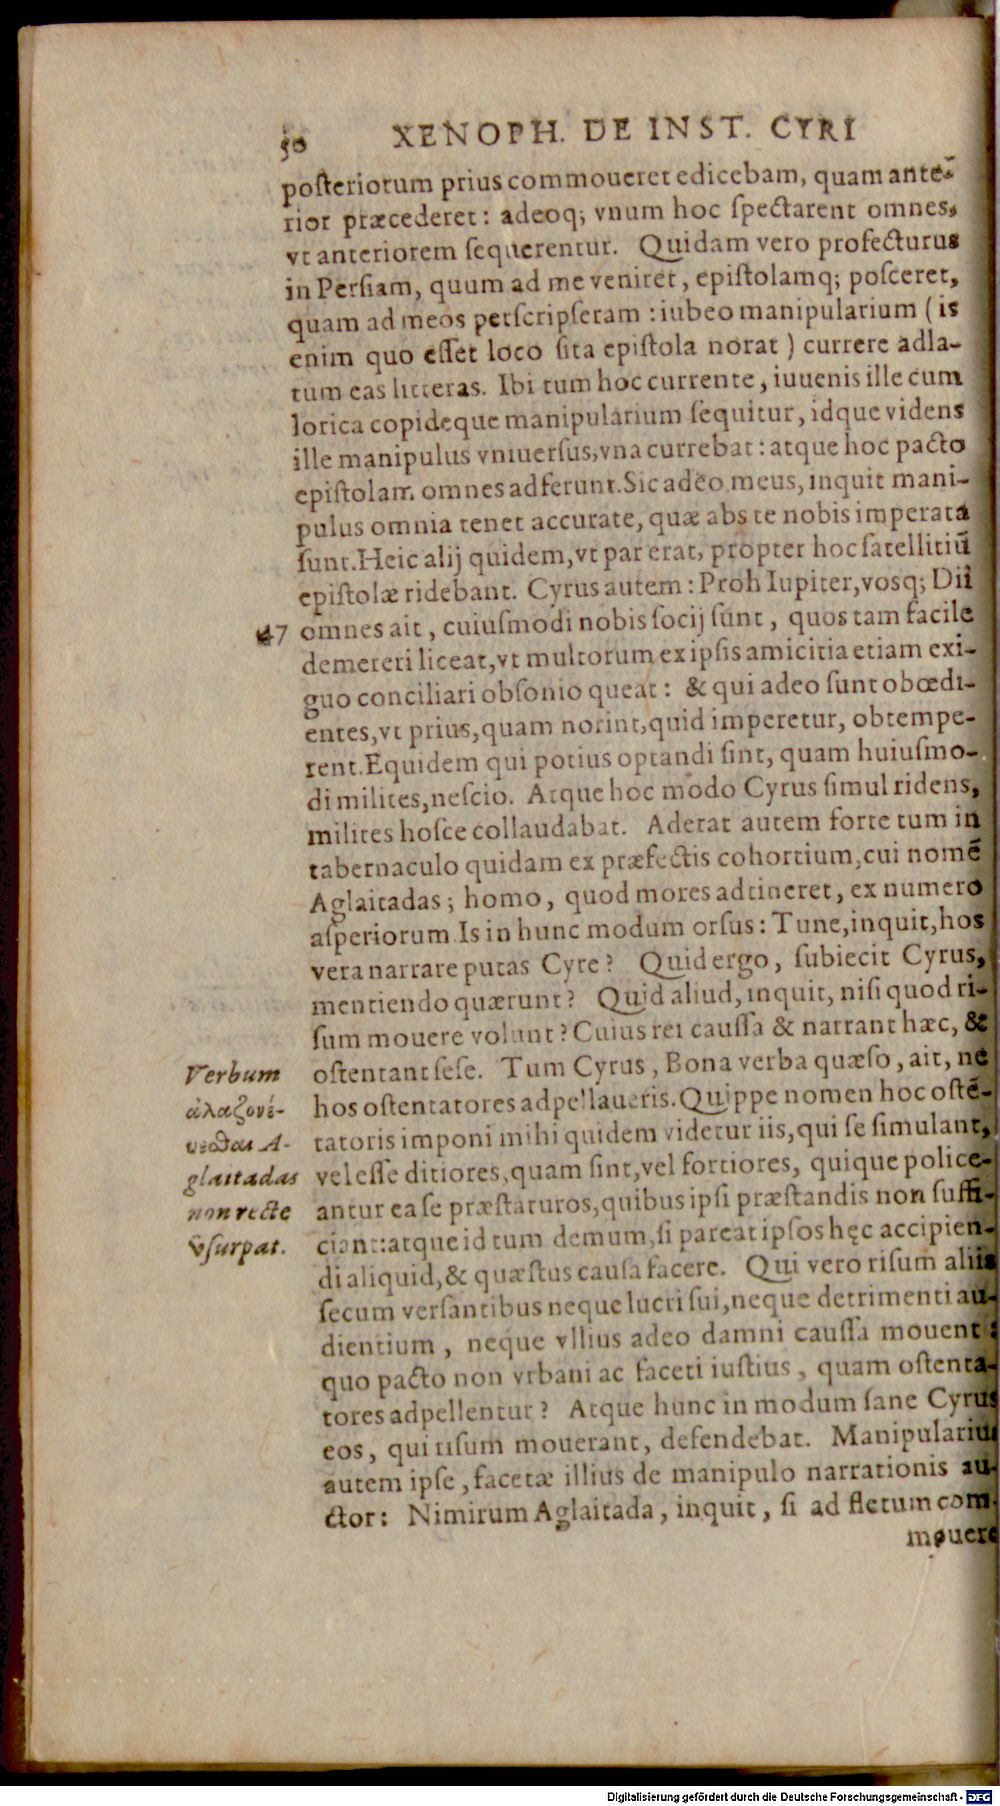 50 XENOPH. DE INST. CYRI
posteriorum prius commoueret edicebam, quam ante-
rior præcederet: adeoq; vnum hoc spectarent omnes,
vt anteriorem sequerentur. Quidam vero profecturus
in Persiam, quum ad me veniret, epistolamq; posceret,
quam ad meos perscripseram: iubeo manipularium (is
enim quo esset loco sita epistola norat) currere adla-
tum eas litteras. Ibi tum hoc currente, iuuenis ille cum
lorica copideque manipularium sequitur, idque videns
ille manipulus vniuersus, vna currebat: atque hoc pacto
epistolam omnes adferunt. Sic adeo meus, inquit mani-
pulus omnia tenet accurate, quæ abs te nobis imperata
sunt. Heic alij quidem, vt par erat, propter hoc satellitiū
epistolæ ridebant. Cyrus autem: Proh Iupiter, vosq; Dii
47 omnes ait, cuiusmodi nobis socij sunt, quos tam facile
demereri liceat, vt multorum ex ipsis amicitia etiam exi-
guo conciliari obsonio queat: & qui adeo sunt obœdi-
entes, vt prius, quam norint, quid imperetur, obtempe-
rent. Equidem qui potius optandi sint, quam huiusmo-
di milites, nescio. Atque hoc modo Cyrus simul ridens,
milites hosce collaudabat. Aderat autem forte tum in
tabernaculo quidam ex præfectis cohortium, cui nomē
Aglaitadas; homo, quod mores adtineret, ex numero
asperiorum. Is in hunc modum orsus: Tune, inquit, hos
vera narrare putas Cyre? Quid ergo, subiecit Cyrus,
mentiendo quærunt? Quid aliud, inquit, nisi quod ri-
sum mouere volunt? Cuius rei caussa & narrant hæc, &
ostentant sese. Tum Cyrus, Bona verba quæso, ait, ne
hos ostentatores adpellaueris. Quippe nomen hoc ostē-
tatoris imponi mihi quidem videtur iis, qui se simulant,
vel esse ditiores, quam sint, vel fortiores, quique police-
antur ea se præstaturos, quibus ipsi præstandis non suffi-
ciant: atque id tum demum, si pareat ipsos hęc accipien-
di aliquid, & quæstus causa facere. Qui vero risum aliis
secum versantibus neque lucri sui, neque detrimenti au-
dientium, neque vllius adeo damni caussa mouent:
quo pacto non vrbani ac faceti iustius, quam ostenta-
tores adpellentur? Atque hunc in modum sane Cyrus
eos, qui risum mouerant, defendebat. Manipularius
autem ipse, facetæ illius de manipulo narrationis au-
ctor: Nimirum Aglaitada, inquit, si ad fletum com-
mouere
Verbum
ἀλαζονέ-
υεσθαι A-
glaitadas
non recte
vsurpat.